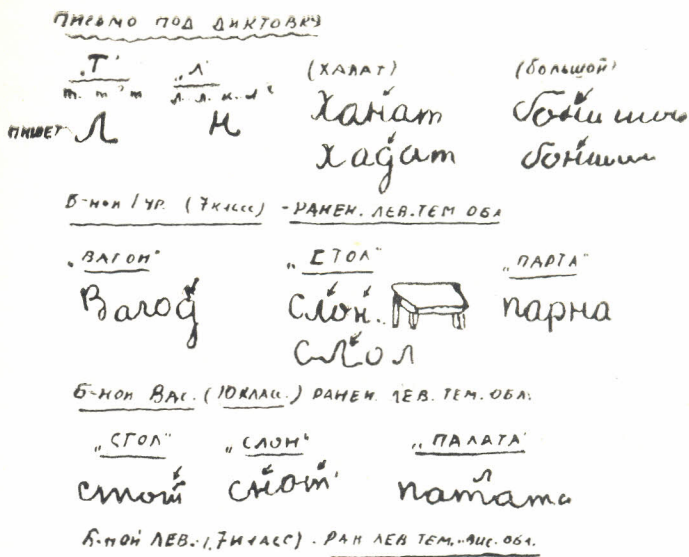 ПИСЬМО ПОД ДИКТОВКУ
„Т" „Л" (ХАЛАТ) (БОЛЬШОЙ)
т. т? т л. л. к. л?
ПИШЕТ Л н Ханат
Хадат
Б-НОЙ ГУР. (7 КЛАСС) - РАНЕН. ЛЕВ. ТЕМ ОБЛ
„ВАГОН" „СТОЛ" „ПАРТА"
Вагод Слон. парна
слол
Б-НОЙ ВАС. (10 КЛАС.) РАНЕН. ЛЕВ. ТЕМ. ОБЛ.
„СТОЛ" „СЛОН" „ПАЛАТА"
стот снот патата
Б-НОЙ ЛЕВ. (7 КЛАСС) - РАН ЛЕВ ТЕМ.-ВИС. ОБЛ.